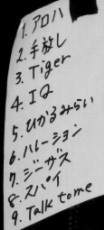 1. アロハ
2. 手放し
3. Tiger
4. IQ
5. ひかるみらい
6. ハレーション
7. ジーザス
8. スパイ
9. Talk to me